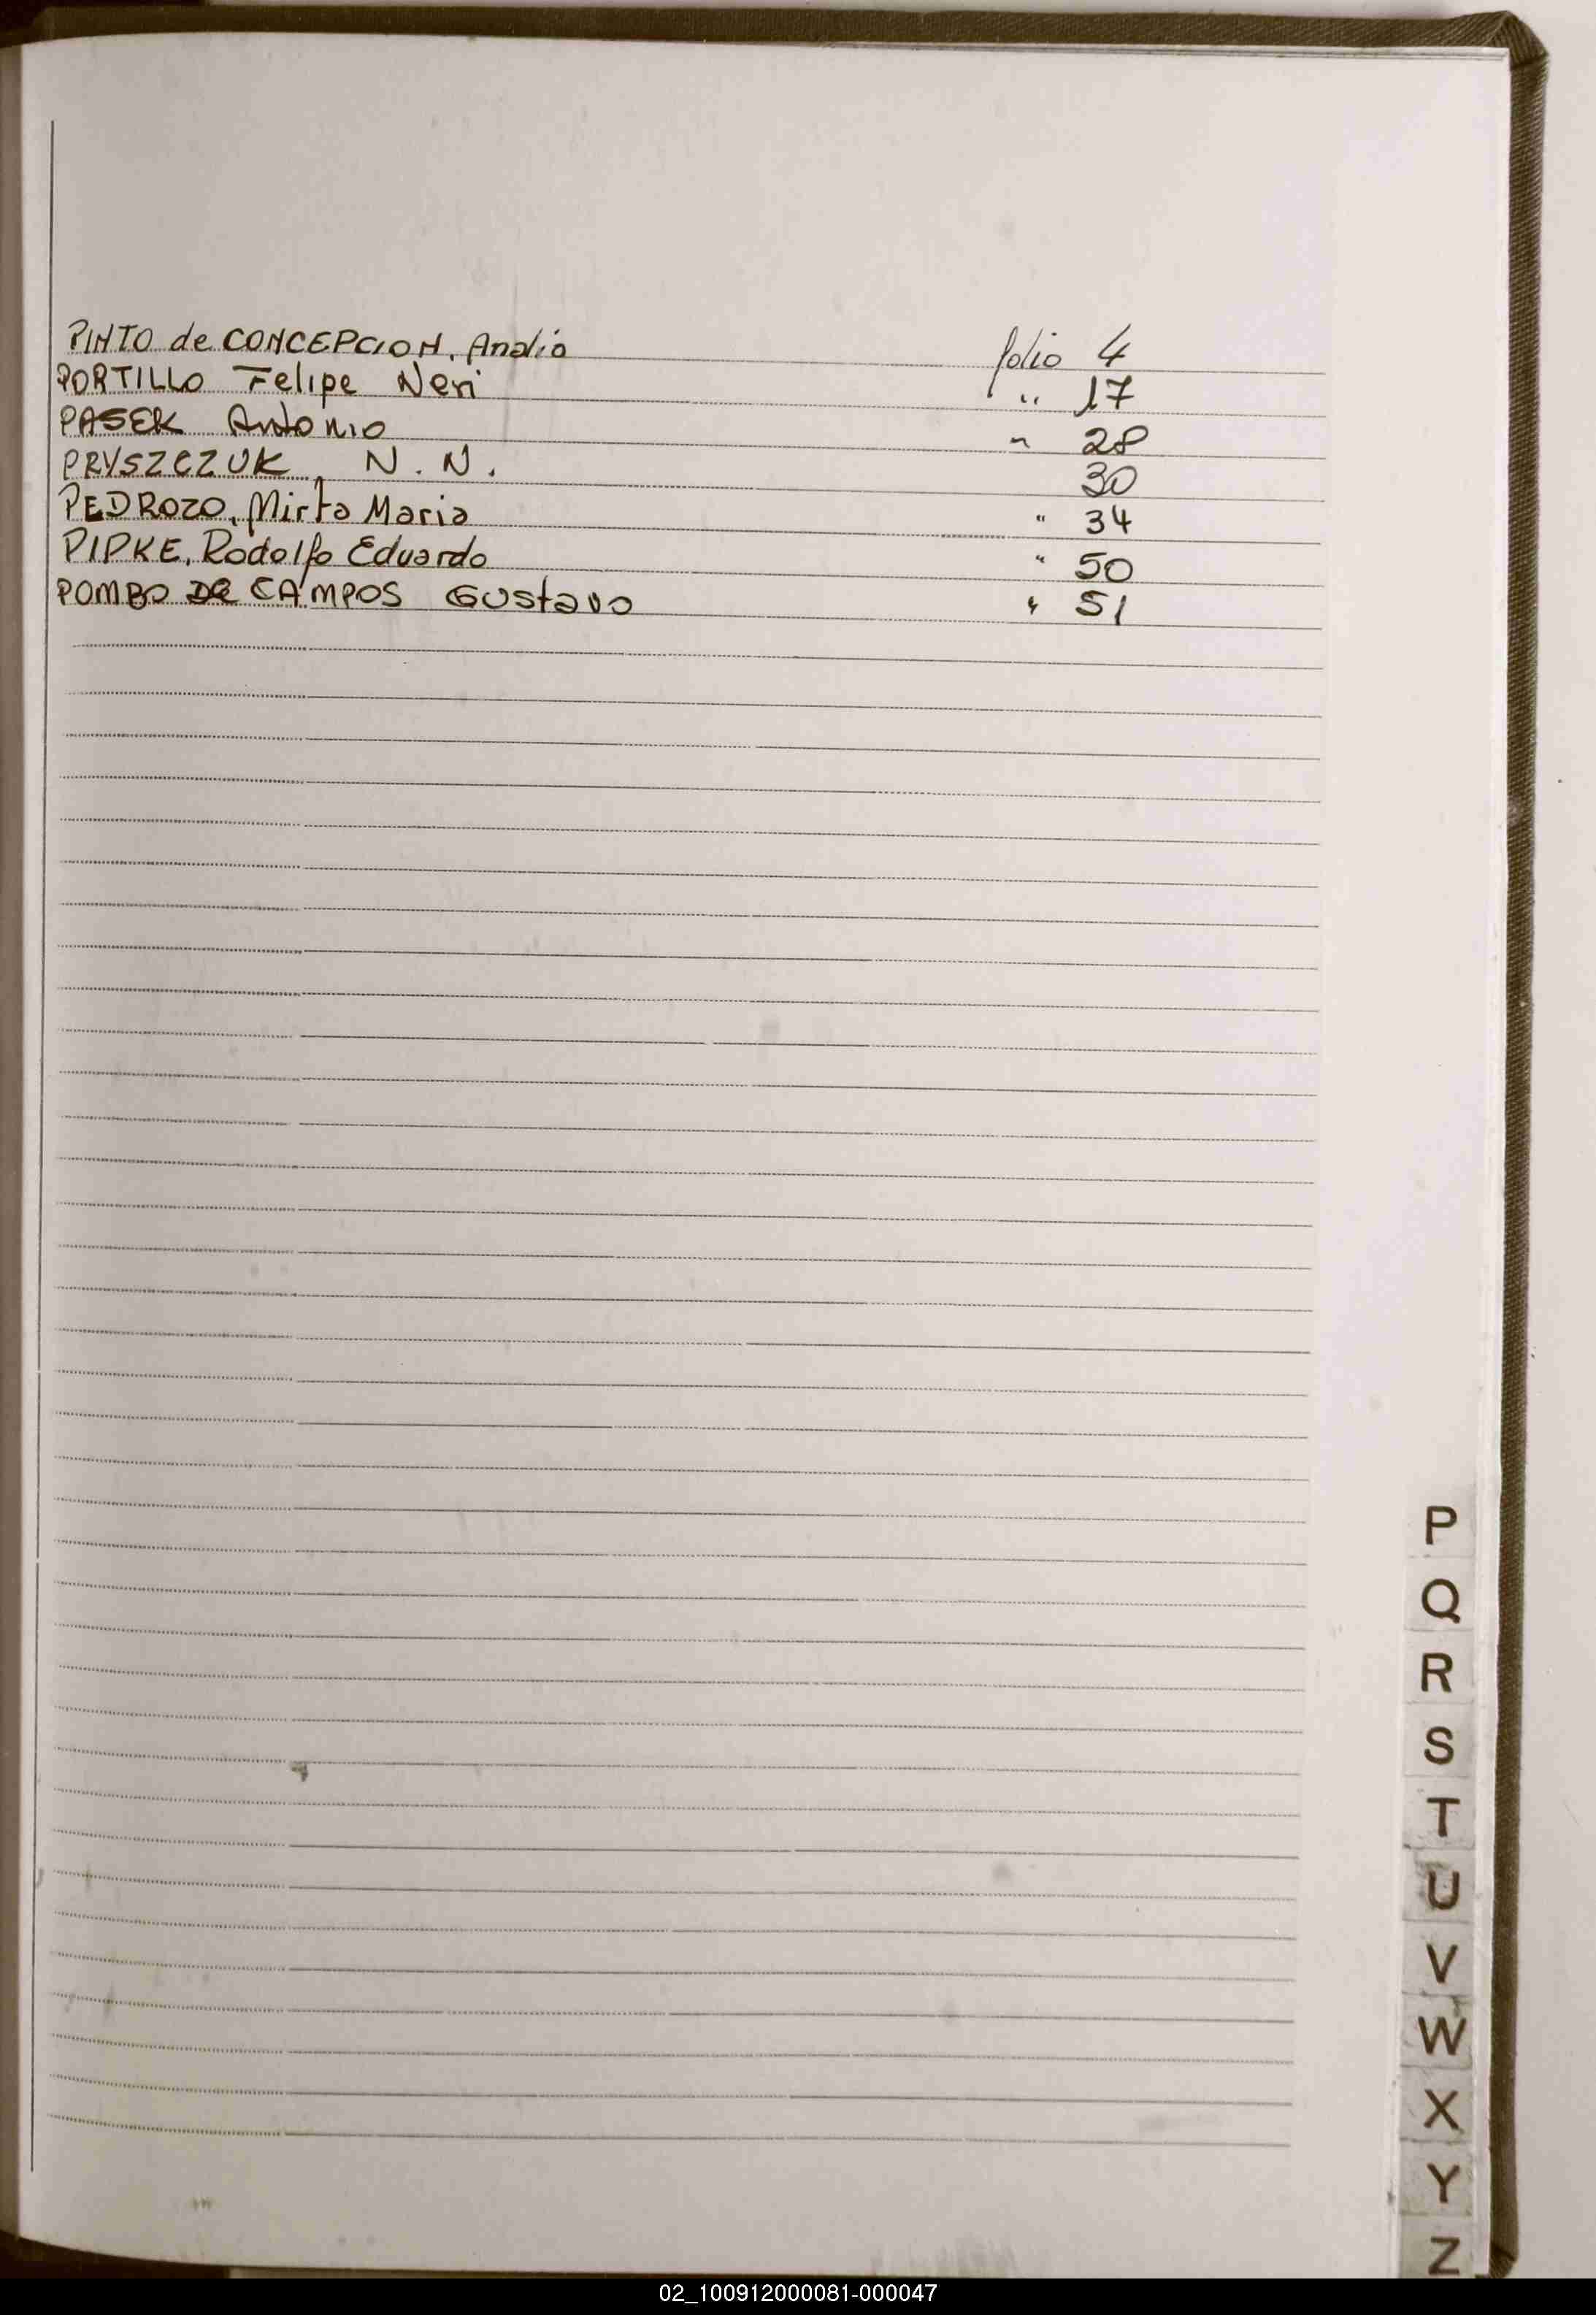 PINTO de CONCEPCION, Analia folio 4
PORTILLO Felipe Neri " 17
PASEK Antonio " 28
PRYSZCZUK, N.N. 30
PEDROZO, Mirta Maria " 34
PIPKE, Rodolfo Eduardo " 50
POMBO DE CAMPOS GUStavo " 51
P
Q
R
S
T
U
V
W
X
Y
Z
02_100912000081-000047